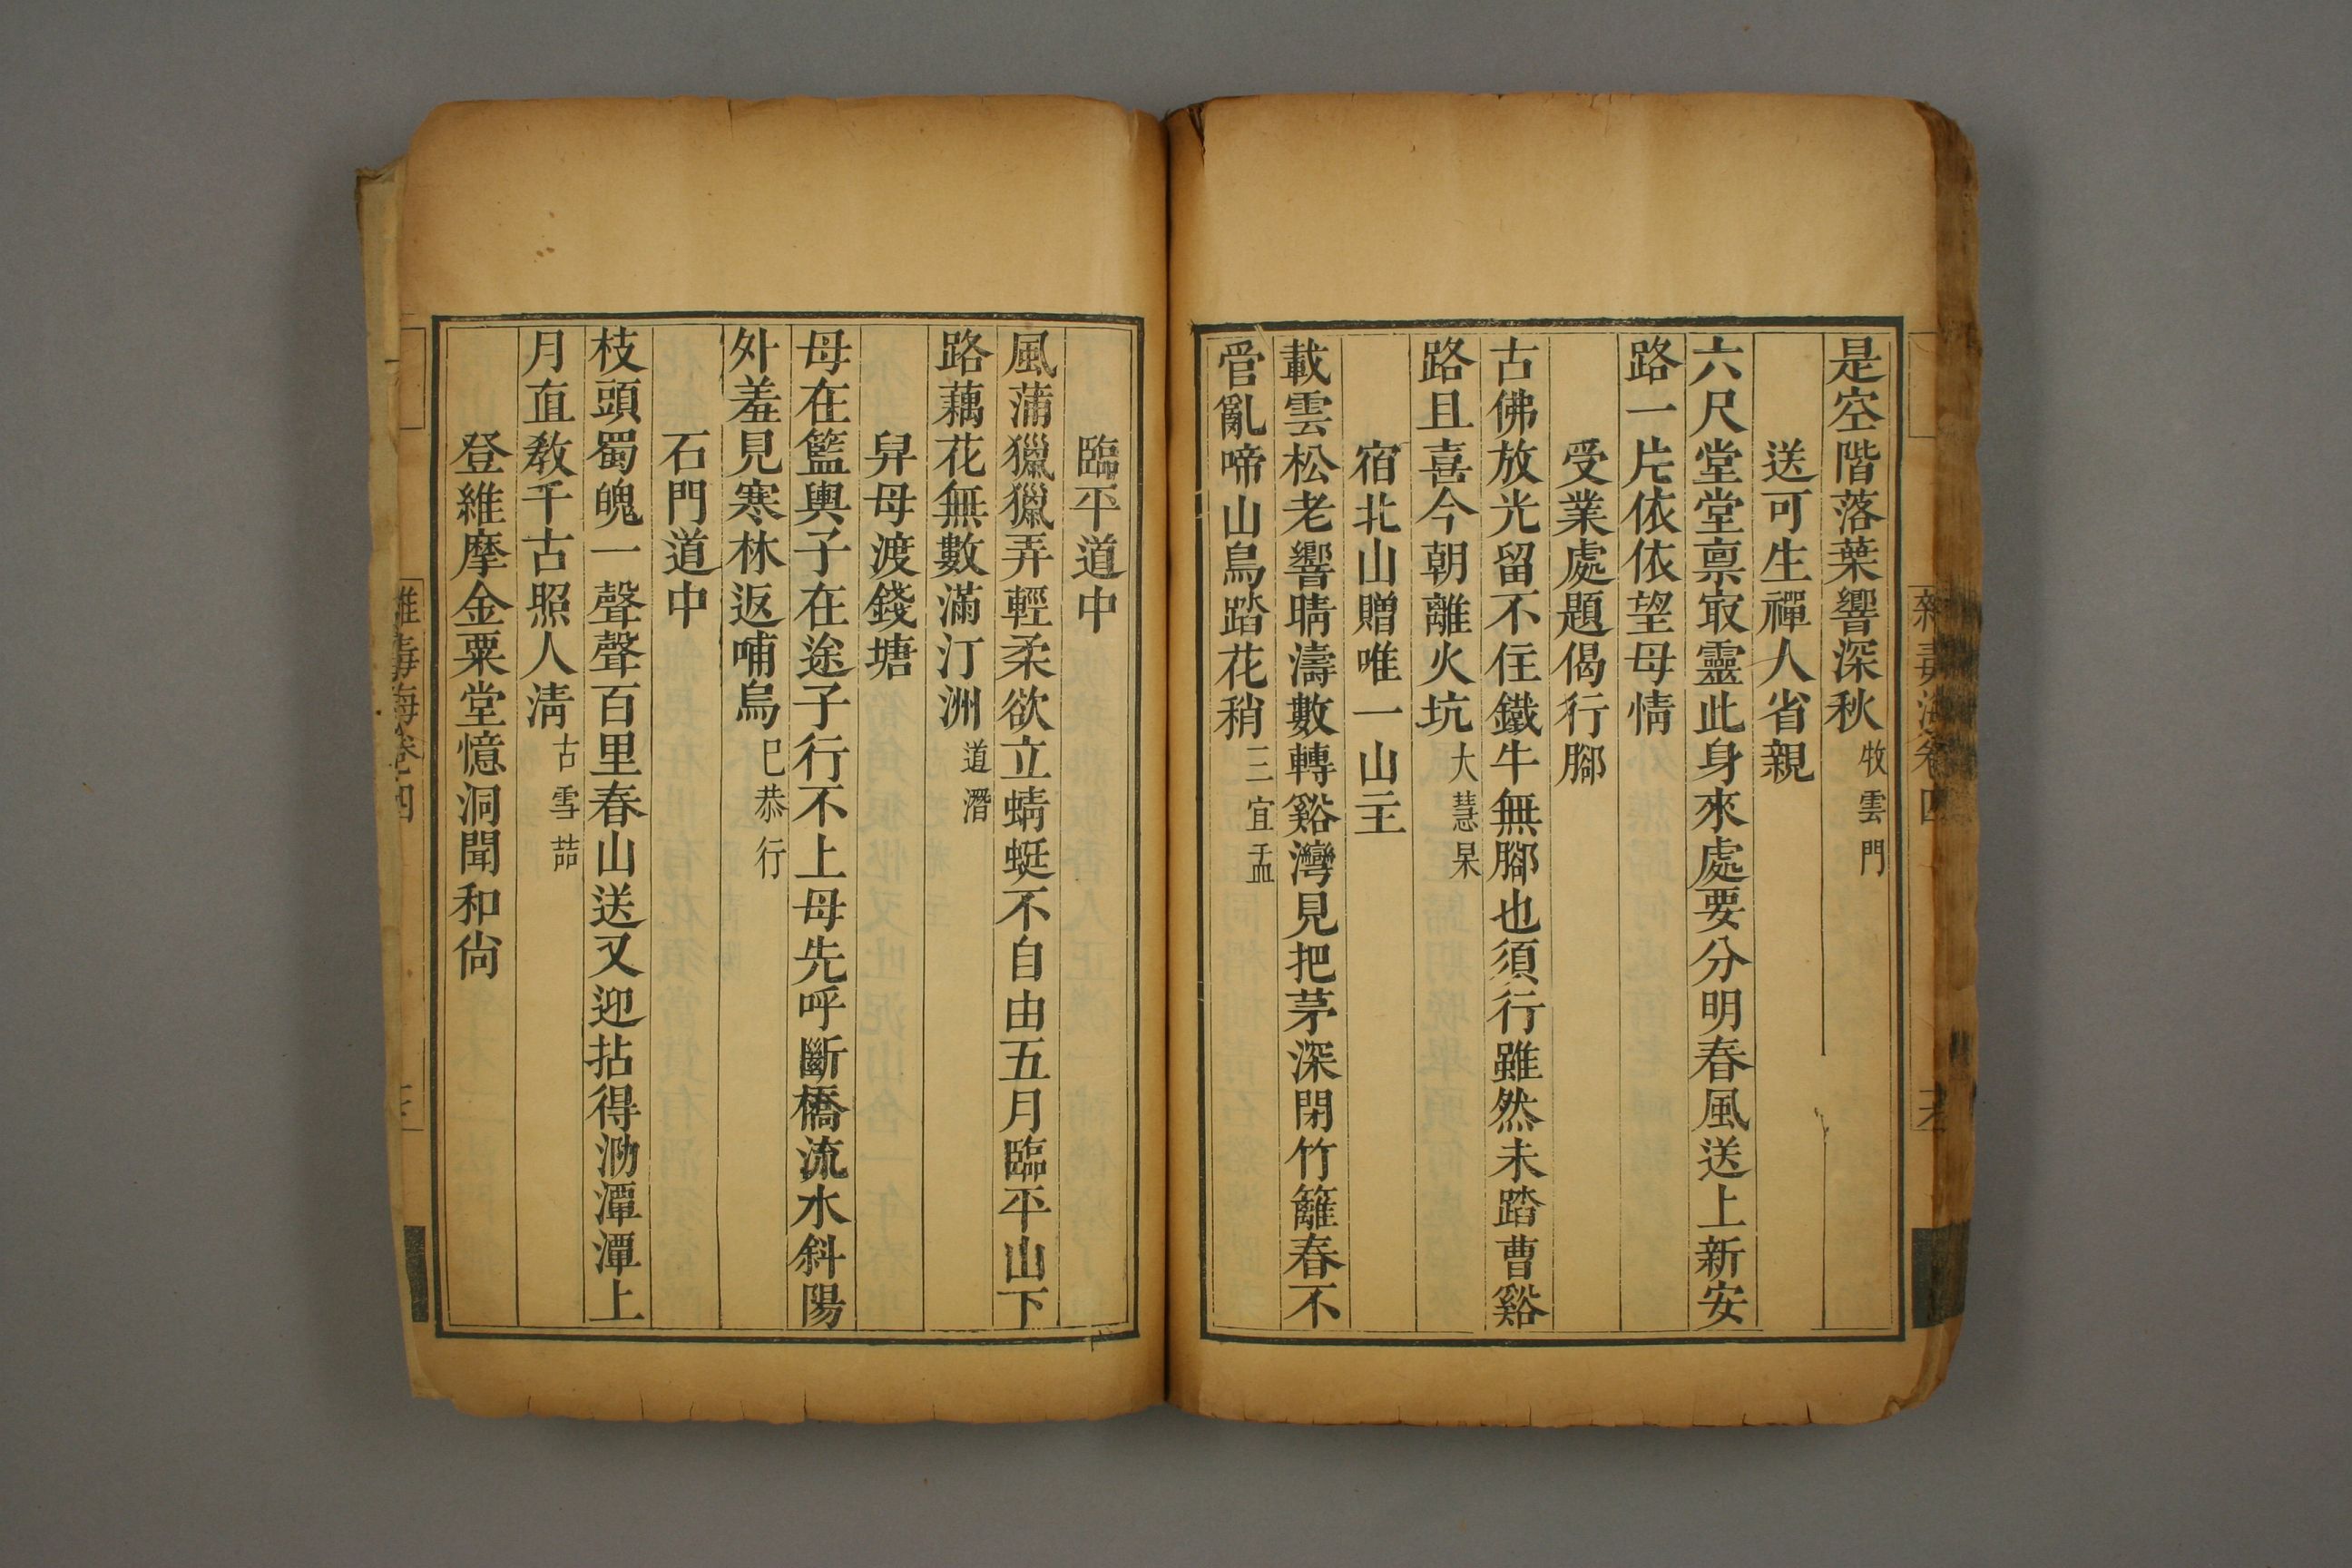 是空階落葉響深秋 牧雲門
送可生禪人省親
六尺堂堂禀㝡靈此身來處要分明春風送上新安
路一片依依望母情
受業處題偈行腳
古佛放光留不住鐵牛無腳也須行雖然未踏曹谿
路且喜今朝離火坑 大慧杲
宿北山贈唯一山主
載雲松老響晴濤數轉谿灣見把茅深閉竹籬春不
管亂啼山鳥踏花稍 三宜盂
臨平道中
風蒲獵獵弄輕柔欲立蜻蜓不自由五月臨平山下
路藕花無數滿汀洲 道潛
舁母渡錢塘
母在籃輿子在途子行不上母先呼斷橋流水斜陽
外羞見寒林返哺烏 巳恭行
石門道中
枝頭蜀魄一聲聲百里春山送又迎拈得泐潭潭上
月直教千古照人清 古雪喆
登維摩金粟堂憶洞聞和尙
雜毒海卷四